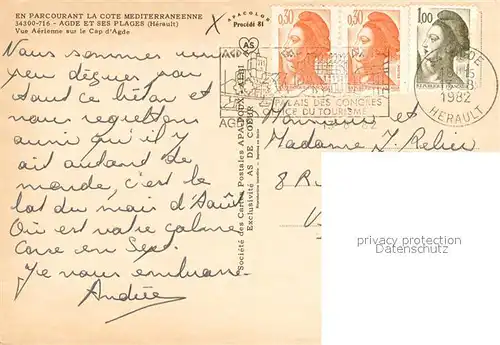 EN PARCOURANT LA COTE MEDITERRANEENNE
34300-716 - AGDE ET SES PLAGES (Hérault)
Vue Aérienne sur le Cap d'Agde
APACOLOR
Procédé 81
Nous sommes un
peu déçues par
tout ce béton et
nous regrettons
aussi qu'il y
ait autant de
monde, c'est le
lot du mois d'Août
Où est notre calme
Corse en Sept.
Je vous embrasse
Andrée
Société des Cartes Postales APA-POUX - ALBI
Exclusivité AS DE COEUR
AS
0.30
0.30
1.00
AGDE
PALAIS DES CONGRES
OFFICE DU TOURISME
1982
HERAULT
Monsieur et
Madame J. Relier
8 Ru
privacy protection
watermark